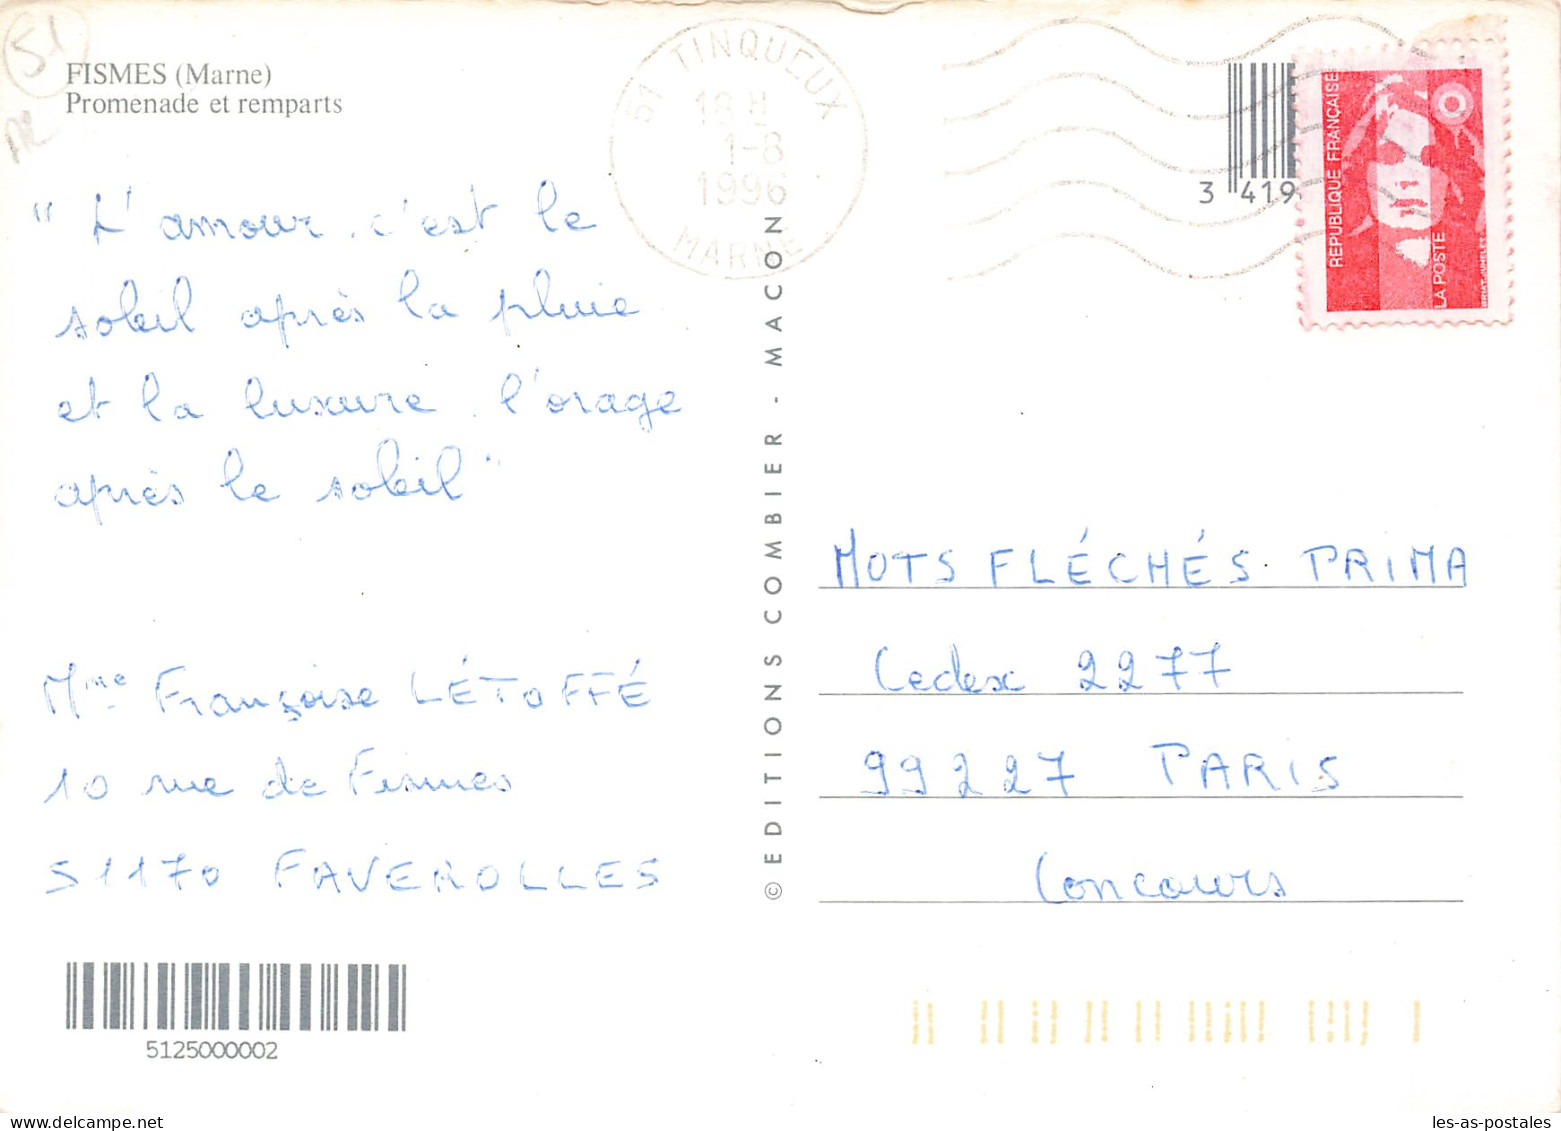 51
FISMES (Marne)
Promenade et remparts
" L'amour, c'est le
soleil après la pluie
et la luxure l'orage
après le soleil"
Mme Françoise LÉTOFFÉ
10 rue de Fismes
51170 FAVEROLLES
5125000002
© EDITIONS COMBIER - MACON
51 TINQUEUX
18 H
1-8
1996
MARNE
3 419
REPUBLIQUE FRANÇAISE
LA POSTE
MOTS FLÉCHÉS PRIMA
Cedex 2277
99227 PARIS
Concours
les-as-postales